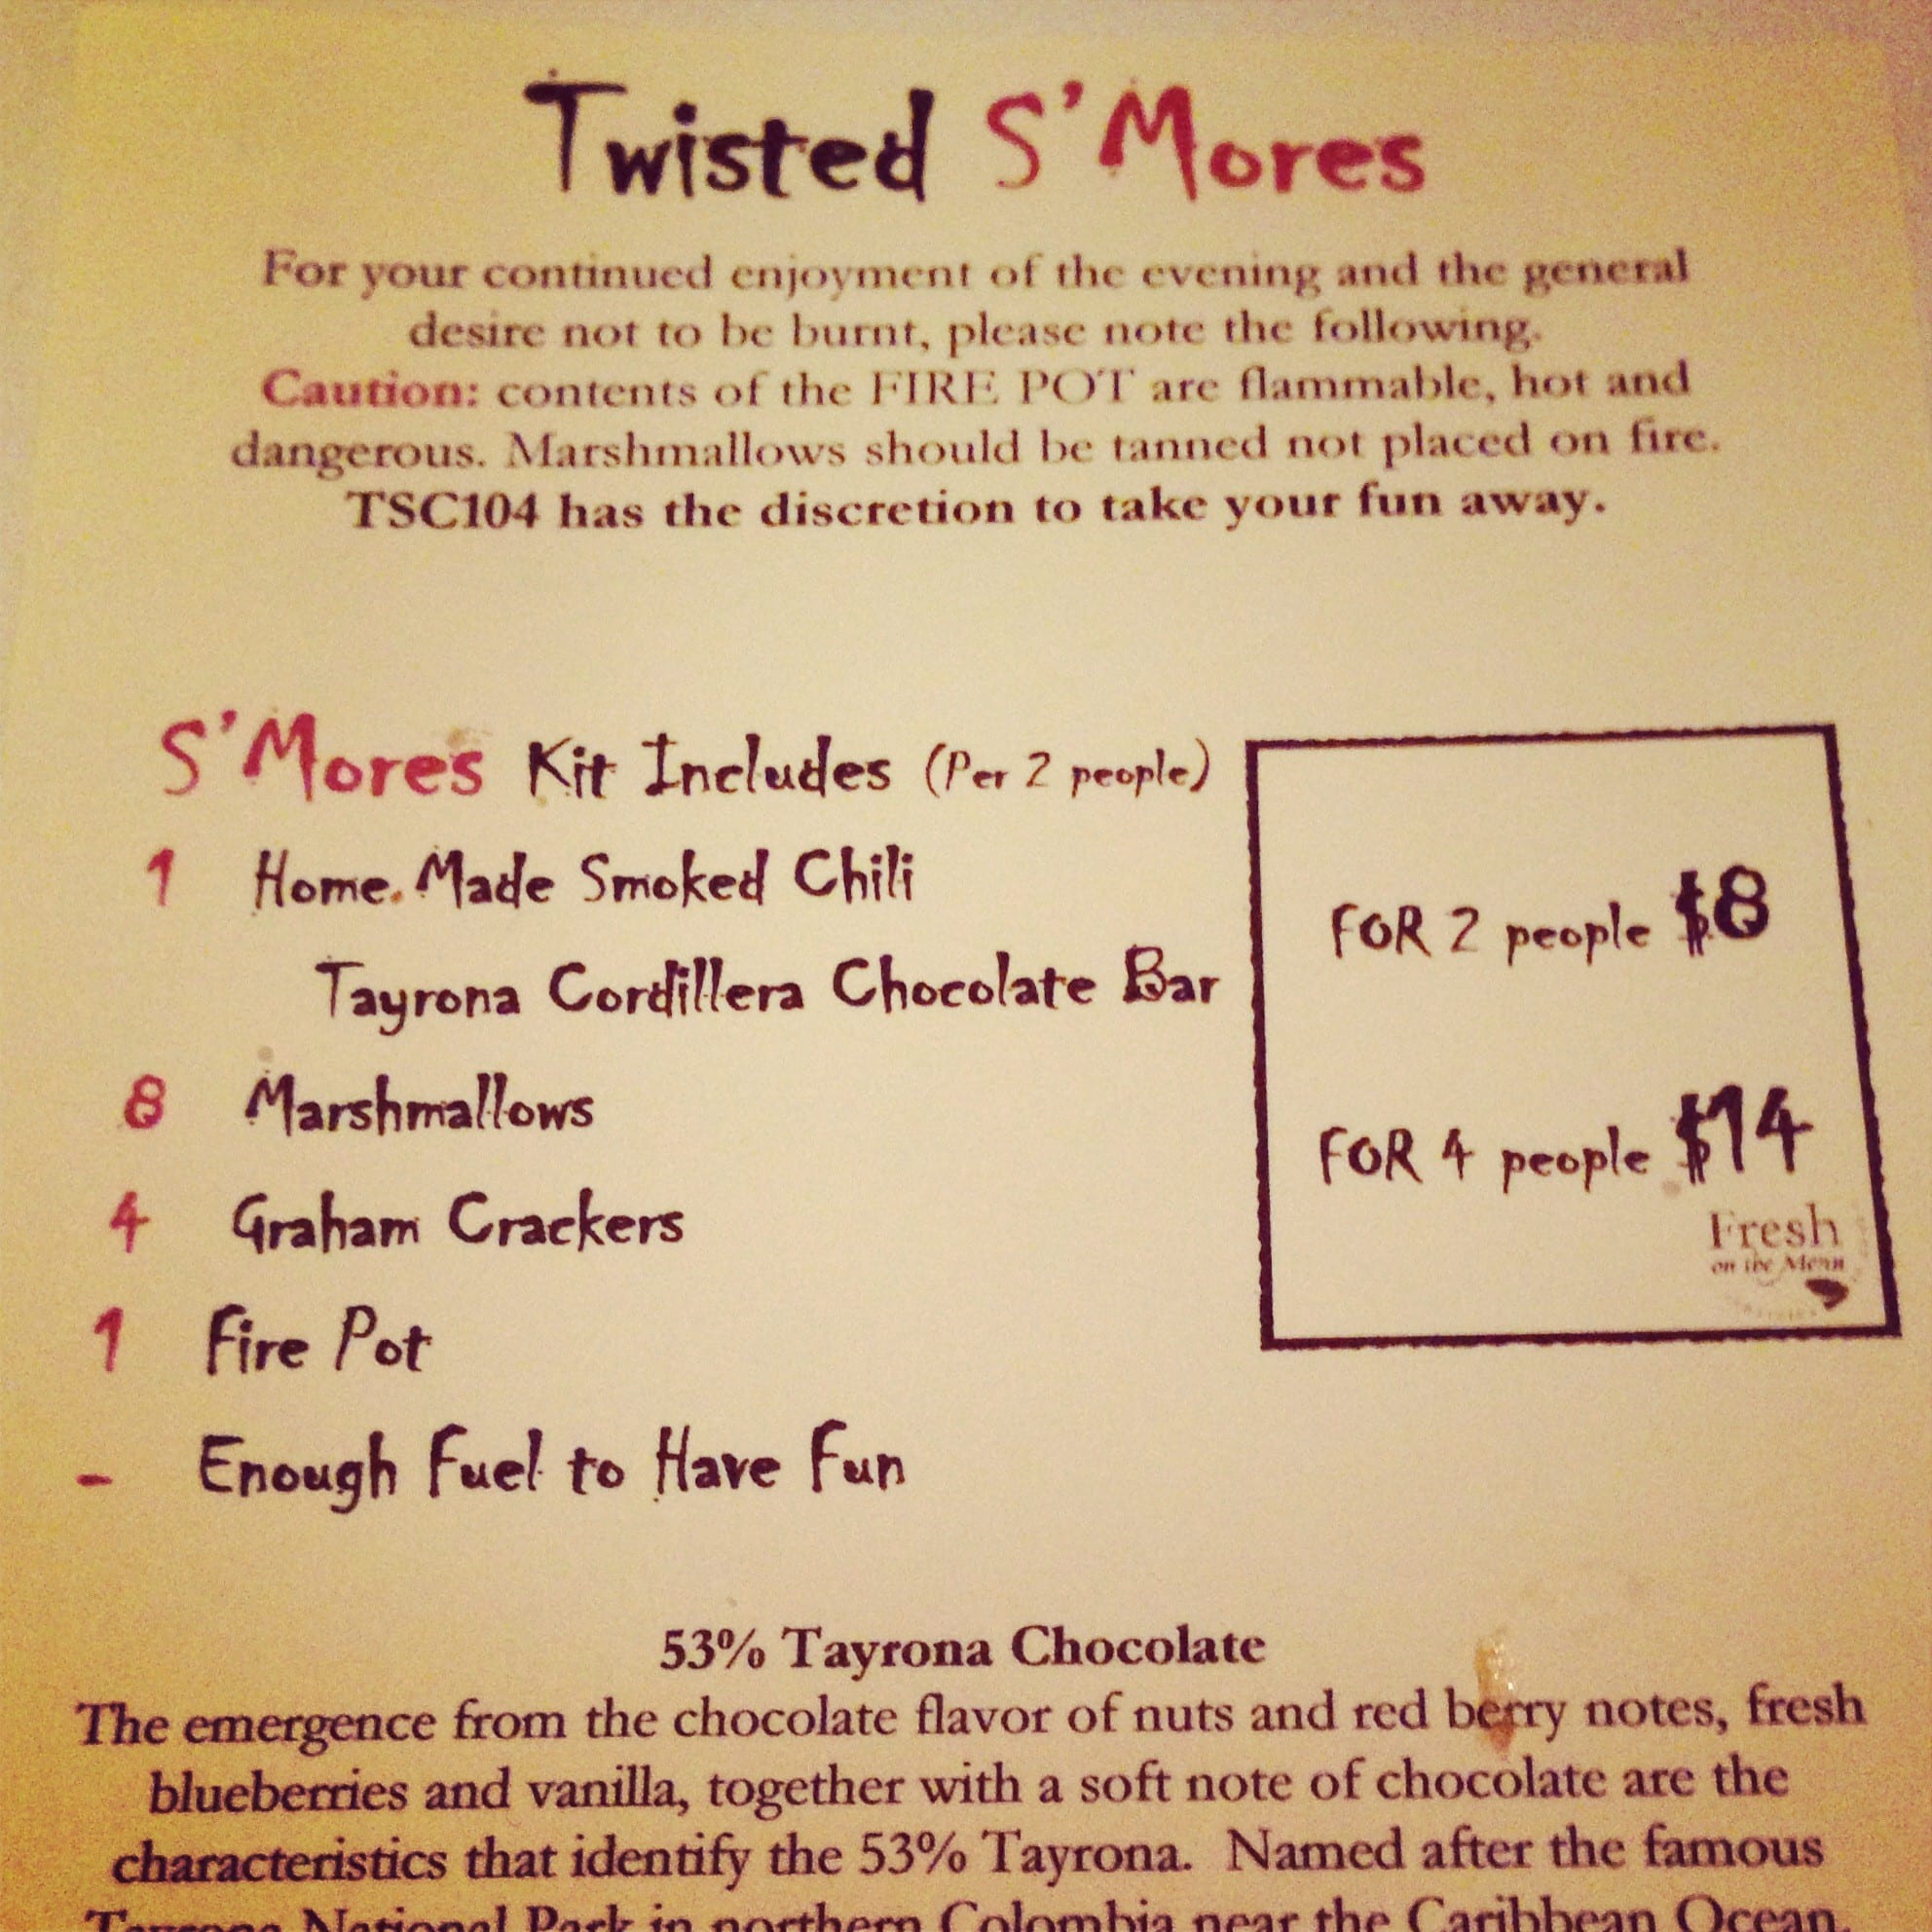 Twisted S'Mores
For your continued enjoyment of the evening and the general
desire not to be burnt, please note the following.
Caution: contents of the FIRE POT are flammable, hot and
dangerous. Marshmallows should be tanned not placed on fire.
TSC104 has the discretion to take your fun away.
S'Mores Kit Includes (Per 2 people)
1 Home Made Smoked Chili
Tayrona Cordillera Chocolate Bar
8 Marshmallows
4 Graham Crackers
1 Fire Pot
- Enough Fuel to Have Fun
FOR 2 people $8
FOR 4 people $14
Fresh
on the Menu
53% Tayrona Chocolate
The emergence from the chocolate flavor of nuts and red berry notes, fresh
blueberries and vanilla, together with a soft note of chocolate are the
characteristics that identify the 53% Tayrona. Named after the famous
Tayrona National Park in northern Colombia near the Caribbean Ocean